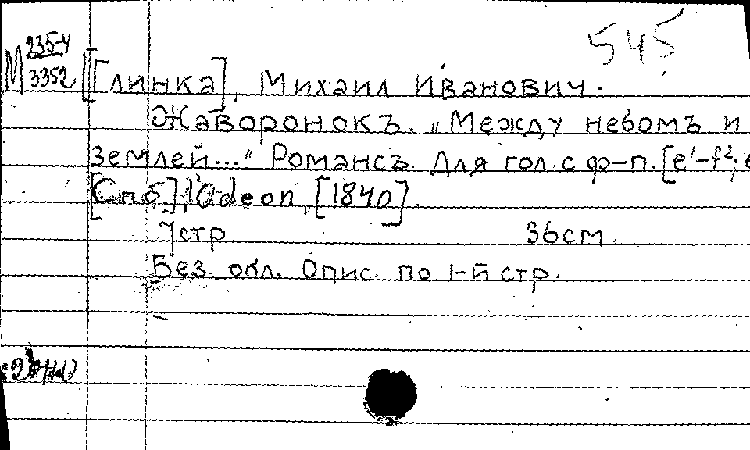 545
М 235-4
3352
[Глинка], Михаил Иванович.
Жаворонокъ. „Между небомъ и
землей..." Романсъ. Для гол. с ф-п. [e¹-f²;
[Спб], l'Odeon, [1840].
7 стр 36 см.
Без обл. Опис. по 1-й стр.